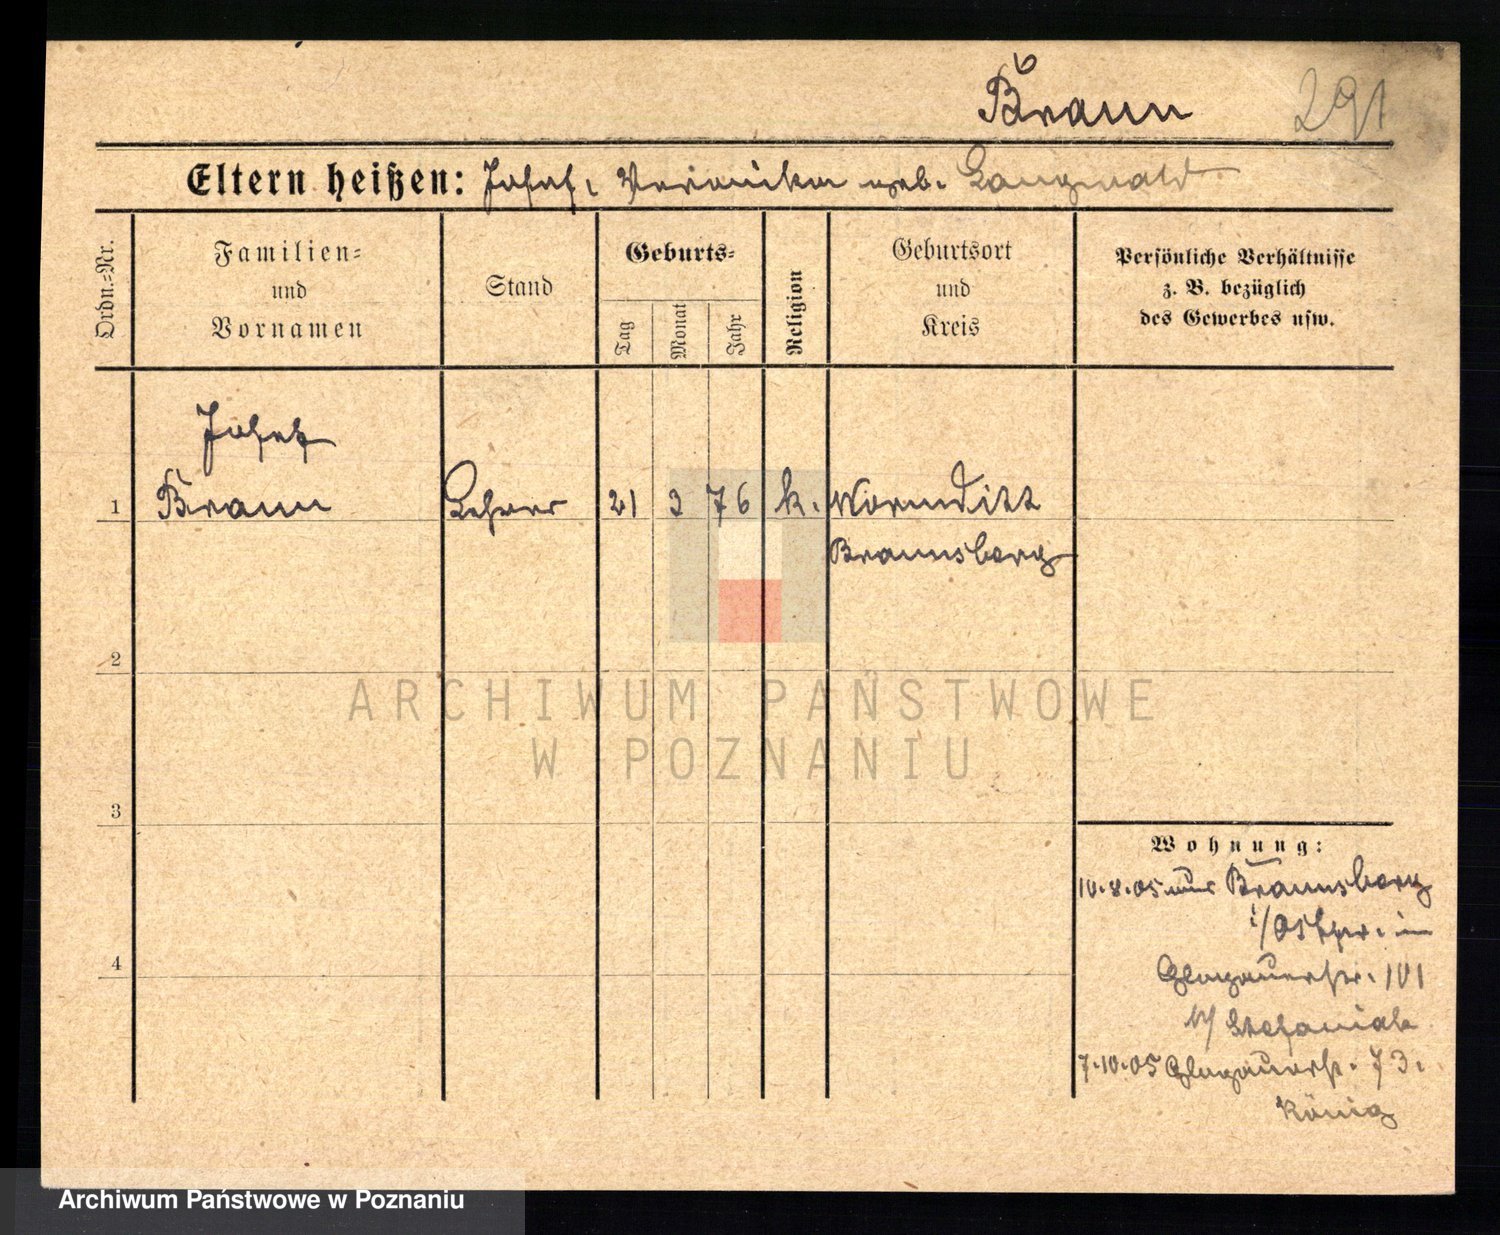 Braun 291
Eltern heißen: Josef, Veronika geb. Langwald
Ordn.=Nr.
Familien=
und
Vornamen
Stand
Geburts=
Tag
Monat
Jahr
Religion
Geburtsort
und
Kreis
Persönliche Verhältnisse
z. B. bezüglich
des Gewerbes usw.
Josef
1 Braun Lehrer 21 3 76 k. Wormditt
Braunsberg
2
ARCHIWUM PAŃSTWOWE
W POZNANIU
3
Wohnung:
10.8.05 aus Braunsberg
i/Ostpr. in
Glogauerstr. 101
b/ Stefaniak
4
7.10.05 Glogauerstr. 73.
König
Archiwum Państwowe w Poznaniu